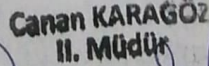 Canan KARAGÖZ
II. Müdür